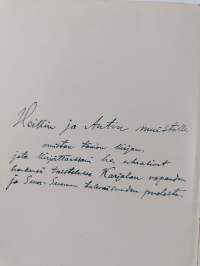 Heikin ja Antin muistolle
omistan tämän kirjan,
jota kirjoittaessani he uhrasivat
henkensä taistelussa Karjalan vapauden
ja Suur-Suomen tulevaisuuden puolesta.